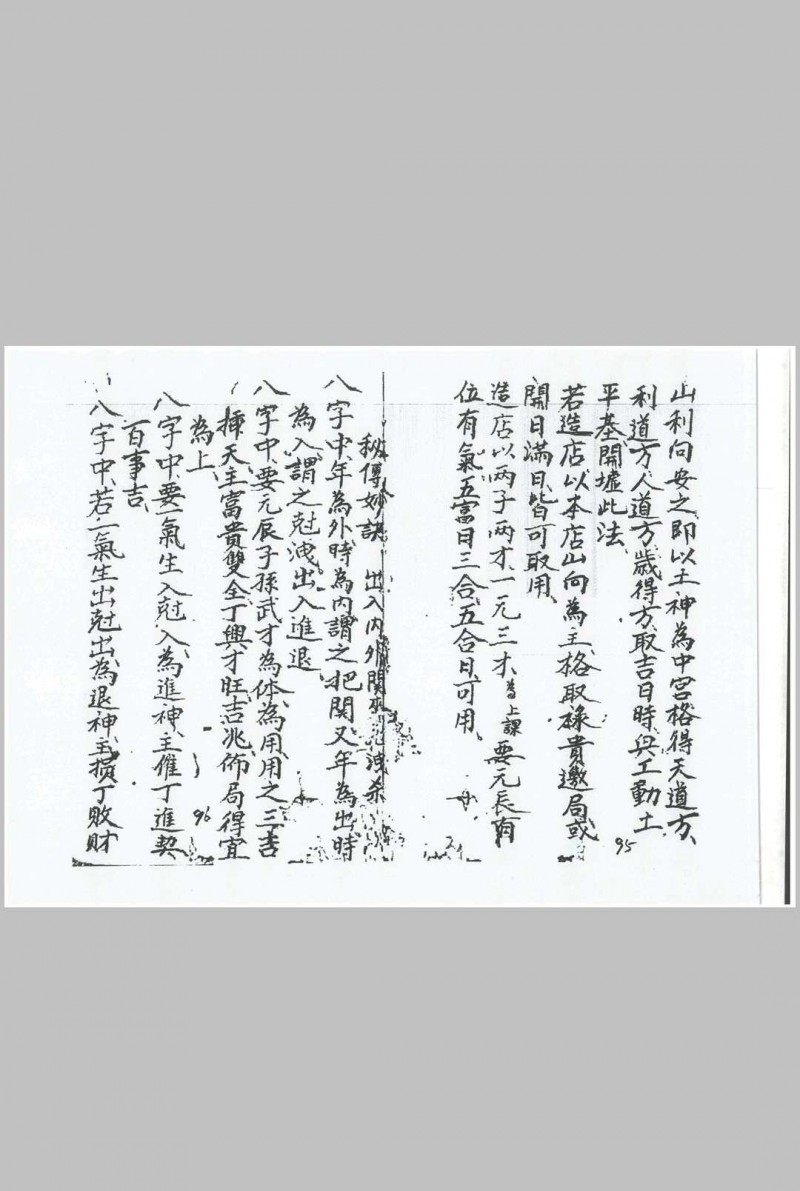 山利向安之即以土神為中宮格得天道方、
利道方、人道方、歲得方、取吉日時與工動土、
平基開墟此法、
若造店以本店山向為主、格取祿貴邀局或
開日滿日、皆可取用、
造店以兩子兩才一元三才、為上課 要元長有
位有氣、五富日三合五合日、可用、
95
秘傳妙訣 出入内外関 洩杀
八字中、年為外時為内、謂之把関、又年為出時
為入、謂之尅洩出入進退、
八字中、要元辰子孫武才為体、為用、用之三吉
揷天主富貴雙全丁興才旺吉兆佈局得宜
為上、
八字中、要一氣生入尅入、為進神、主催丁進契
百事吉、
八字中、若一氣生出尅出、為退神、主損丁敗財
96